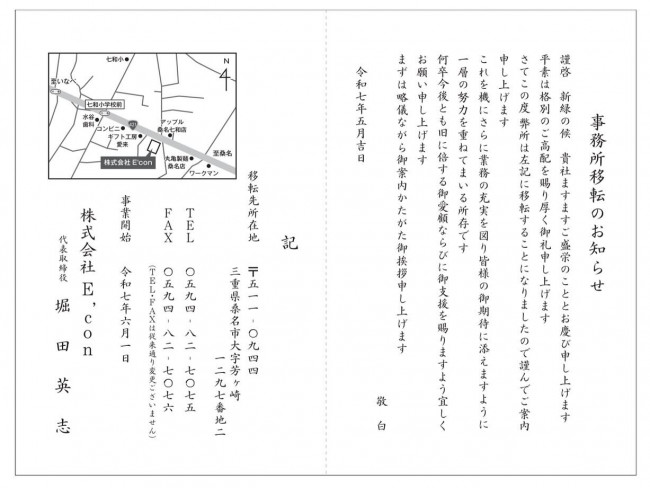 事務所移転のお知らせ
謹啓　新緑の候　貴社ますますご盛栄のこととお慶び申し上げます
平素は格別のご高配を賜り厚く御礼申し上げます
さてこの度 弊所は左記に移転することになりましたので謹んでご案内
申し上げます
これを機にさらに業務の充実を図り皆様の御期待に添えますように
一層の努力を重ねてまいる所存です
何卒今後とも旧に倍する御愛顧ならびに御支援を賜りますよう宜しく
お願い申し上げます
まずは略儀ながら御案内かたがた御挨拶申し上げます
敬白
令和七年五月吉日
記
移転先所在地　〒五一一-〇九四四
三重県桑名市大字芳ヶ崎
一二九七番地二
TEL　〇五九四-八二-七〇七五
FAX　〇五九四-八二-七〇七六
(TEL・FAXは従来通り変更ございません)
事業開始　令和七年六月一日
株式会社 E'con
代表取締役　堀田英志
七和小
N
4
至いなべ
七和小学校前
水谷
歯科
コンビニ
ギフト工房
愛来
アップル
桑名七和店
株式会社 E'con
丸亀製麺
桑名店
至桑名
ワークマン